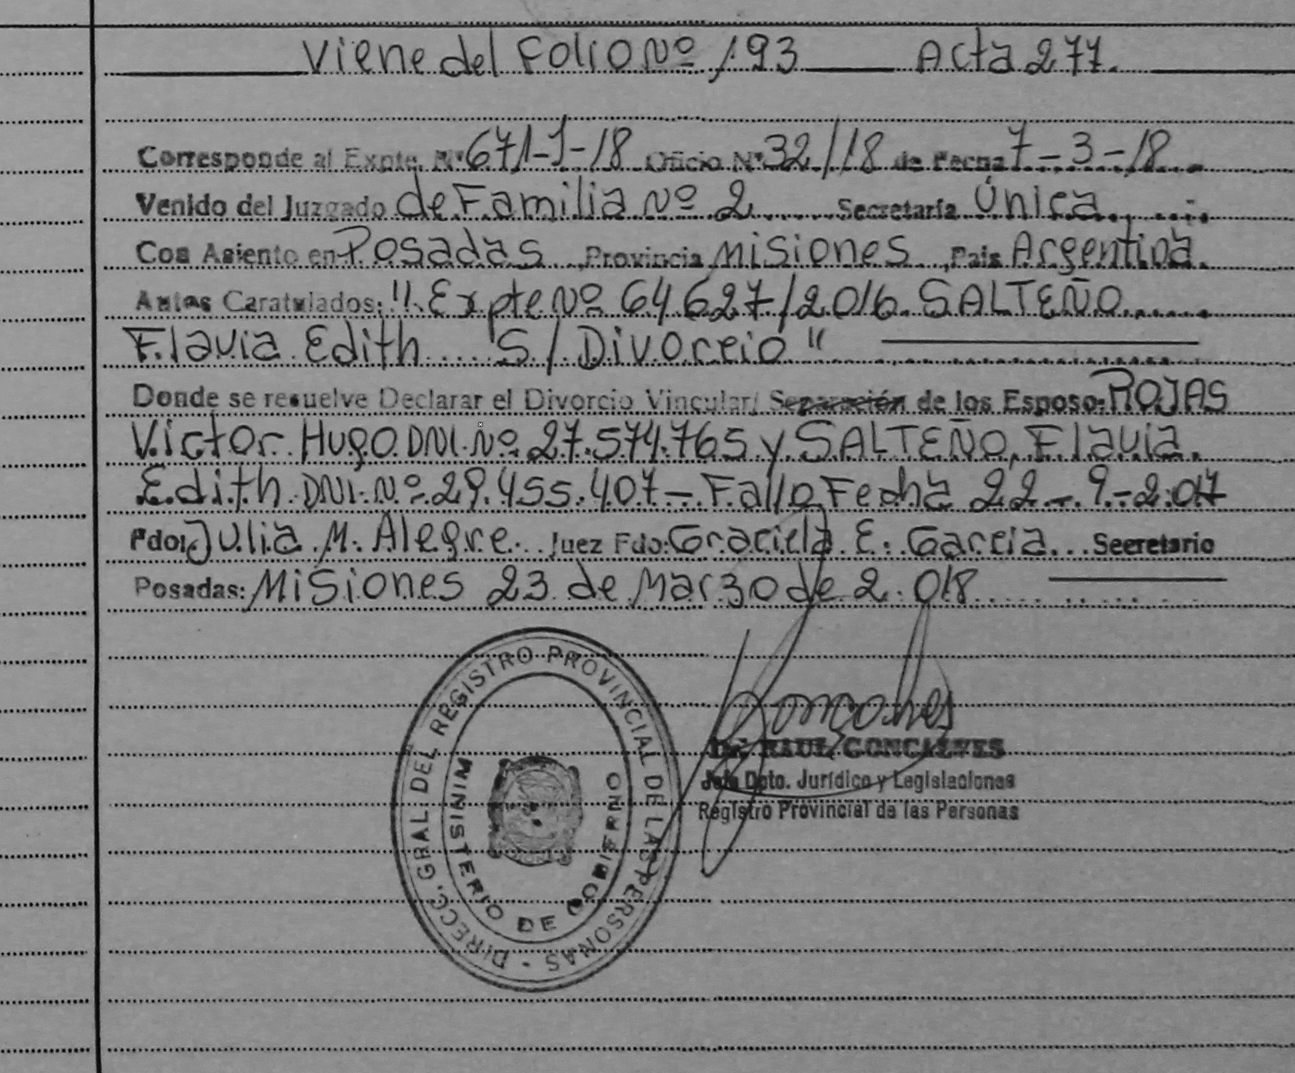 Viene del Folio Nº 193 Acta 277.
Corresponde al Expte. Nº 671-J-18 Oficio Nº 32/18 de Fecha 7-3-18.
Venido del Juzgado de Familia Nº 2 Secretaría Única.
Con Asiento en Posadas Provincia Misiones, País Argentina.
Autos Caratulados: "Expte Nº 64627/2016. SALTEÑO
Flavia Edith S/Divorcio"
Donde se resuelve Declarar el Divorcio Vincular/ Separación de los Esposo: ROJAS
Victor Hugo DNI. Nº 27.574.765 y SALTEÑO, Flavia
Edith DNI. Nº 29.455.407 - Fallo Fecha 22-9-2017
Fdo: Julia M. Alegre. Juez Fdo: Graciela E. Garcia... Secretario
Posadas: Misiones 23 de Marzo de 2.018
DIRECC. GRAL. DEL REGISTRO PROVINCIAL DE LAS PERSONAS -
MINISTERIO DE GOBIERNO
Goncalves
Dr. RAUL GONCALVES
Jefe Dpto. Jurídico y Legislaciones
Registro Provincial de las Personas